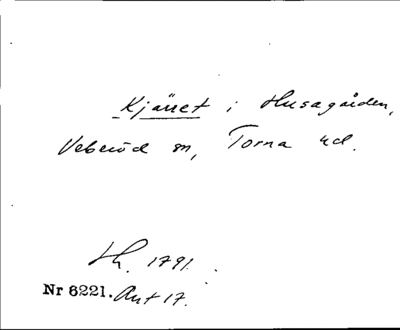 Kjärret i Husagården,
Veberöd sn, Torna hd.
Lh. 1791.
Nr 6221. Ant 17.